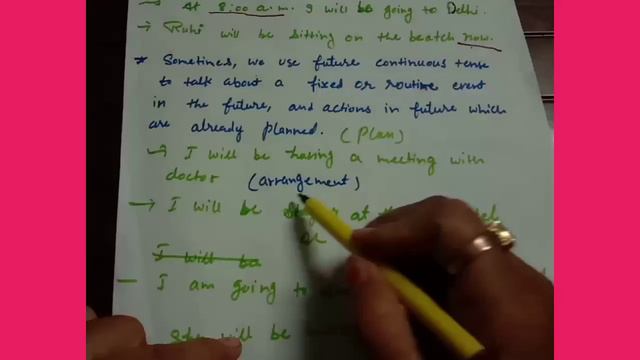 → At 8:00 a.m. I will be going to Delhi.
→ Ruhi will be sitting on the beatch now.
* Sometimes, we use future continuous tense
to talk about a fixed or routine event
in the future, and actions in future which
are already planned. (Plan)
→ I will be having a meeting with
doctor (arrangement)
→ I will be at
I will be
– I am going to
will be